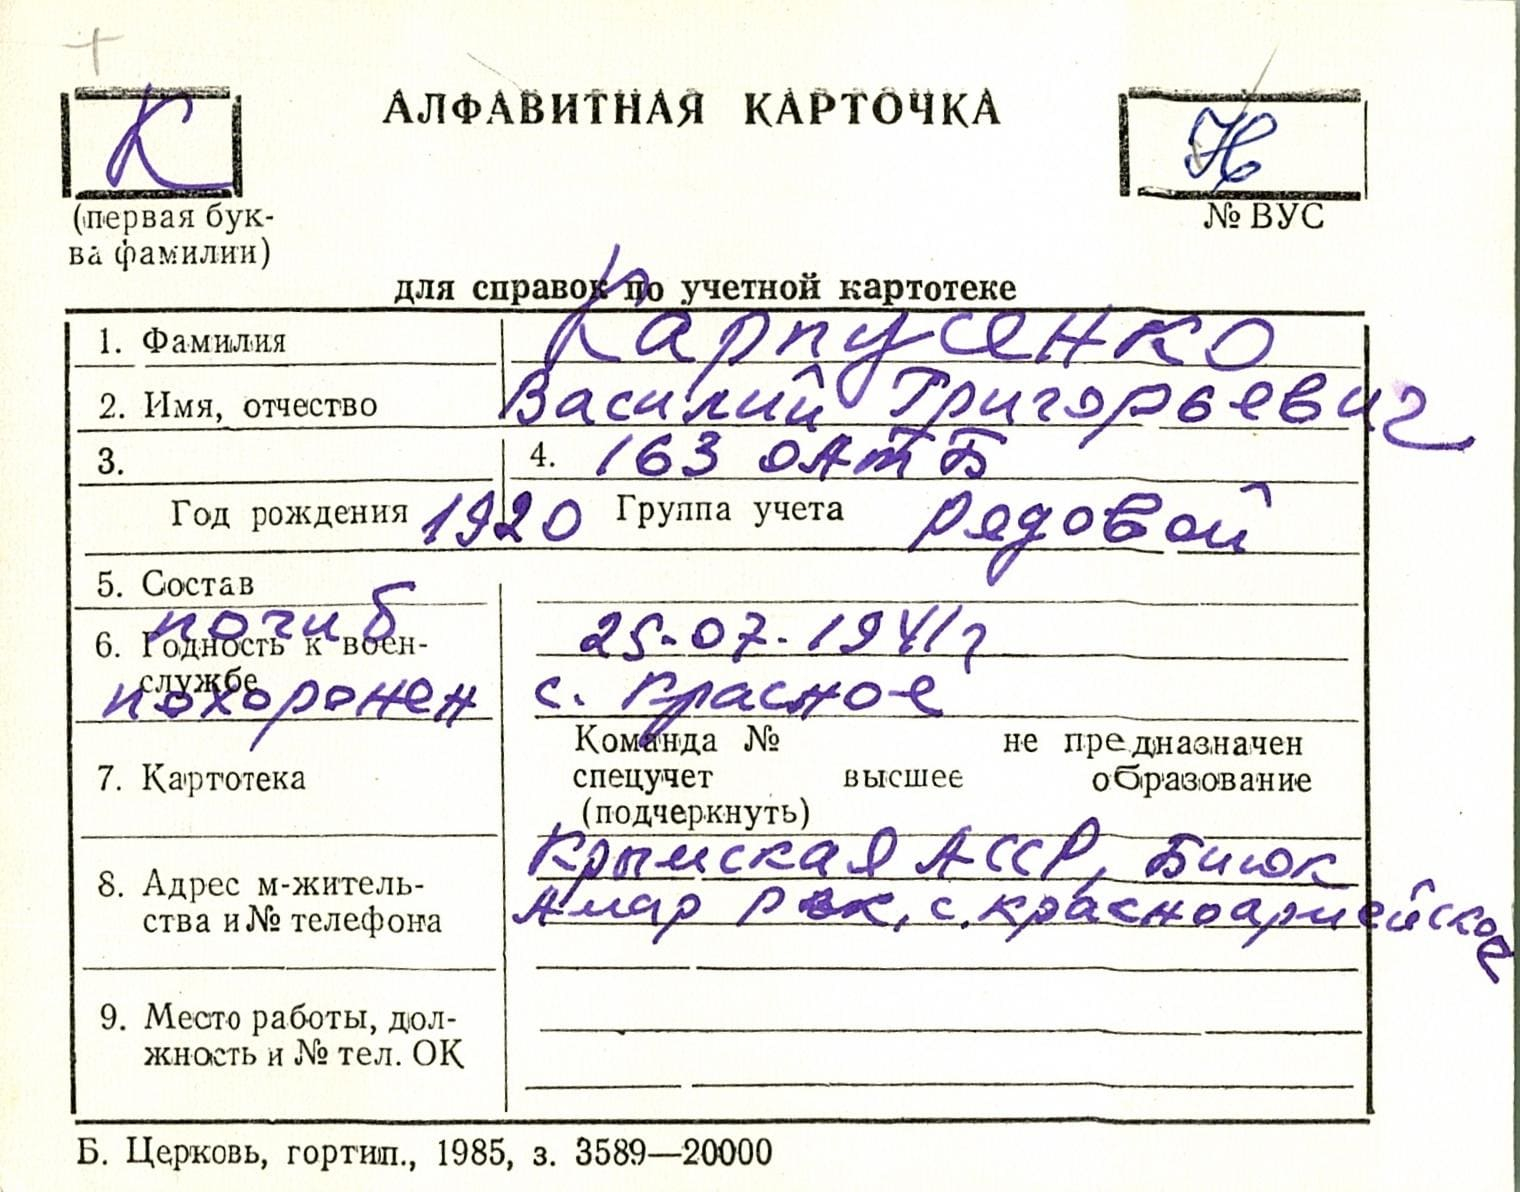 К
АЛФАВИТНАЯ КАРТОЧКА
Н
(первая бук-
ва фамилии)
№ ВУС
для справок по учетной картотеке
1. Фамилия Карпусенко
2. Имя, отчество Василий Григорьевич
3. 4. 163 ОАТБ
Год рождения 1920 Группа учета рядовой
5. Состав
погиб 25-07-1941г
6. Годность к воен-
службе
похоронен с. Красное
Команда № не предназначен
7. Картотека спецучет высшее образование
(подчеркнуть)
Крымская АССР, Биюк
8. Адрес м-житель-
ства и № телефона Амар РВК, с. Красноармейское
9. Место работы, дол-
жность и № тел. ОК
Б. Церковь, гортип., 1985, з. 3589—20000